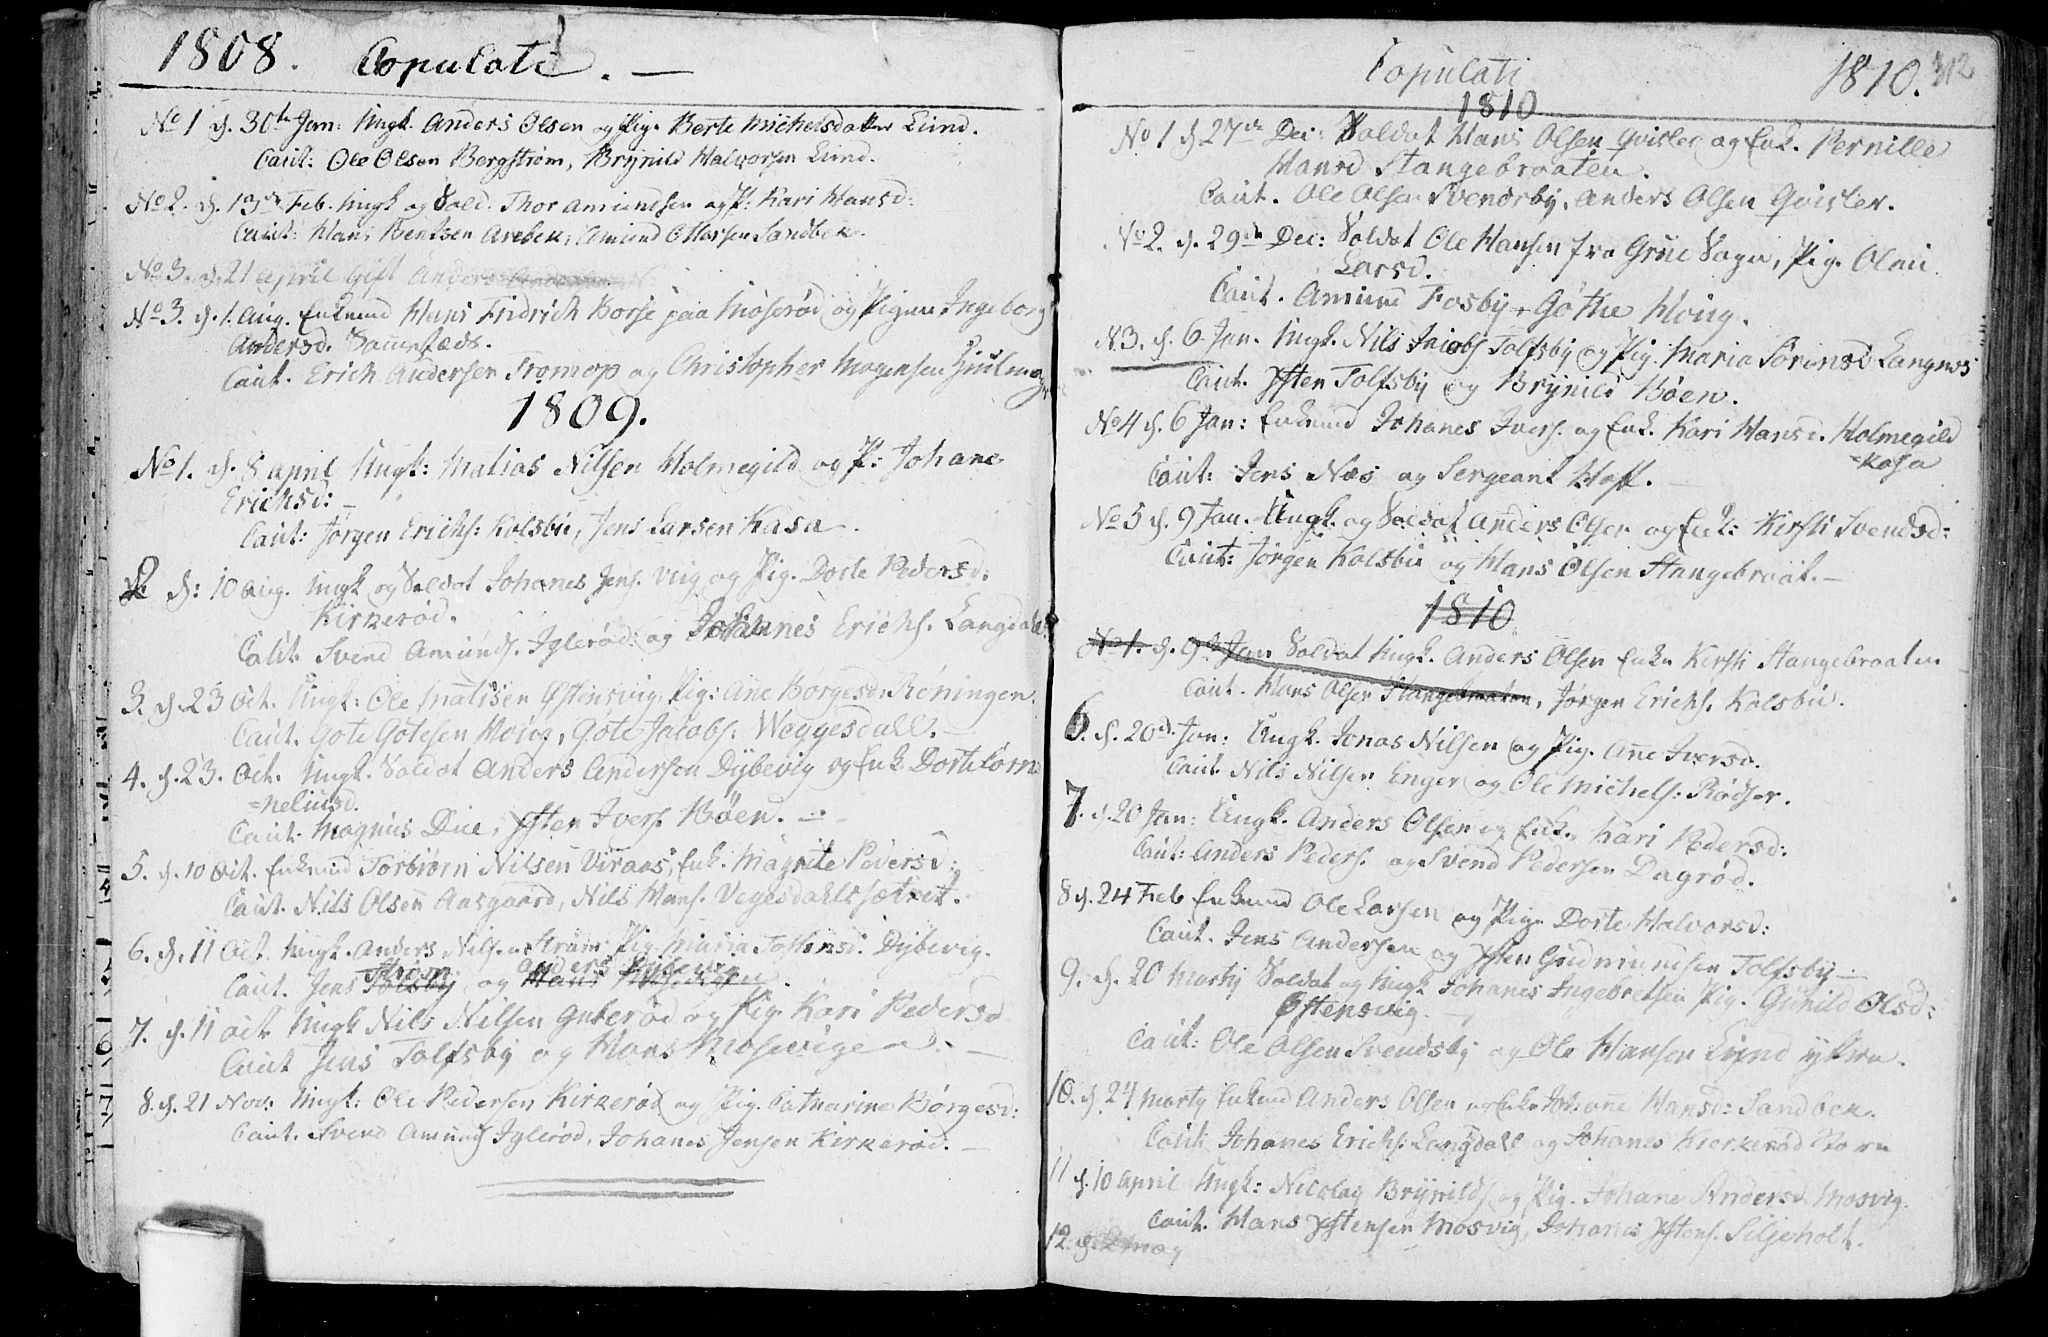 1808. Copulati. —
No 1 d. 30te Jan: Ungk. Anders Olsen og Pig. Berte Michelsdatter Lund.
Caut: Ole Olsen Bergstrøm, Brynild Halvorsen Lund.
No 2. d. 13de Feb. Ungk og Sold. Thor Amundsen og P: Kari Hansd:
Caut: Hans Bentsen Arebek, Amund Ottersen Sandbek.
No 3. d. 21 April Gift Anders
No 3. d. 1. Aug. Enkemd Hans Fridrich Borse paa Moserød og Pigen Ingeborg
Andersd. Sammesteds.
Caut. Erich Andersen Tromop og Christopher Mogensen
1809.
No 1. d. 8 April Ungk: Matias Nilsen Holmegild og P: Johane
Erichsd: —
Caut: Jørgen Erichs: Kolsbu, Jens Larsen Kasa.
2 d: 10 Aug. Ungk og Soldat Johanes Jens. Viig og Pig. Dorte Pedersd.
Kirkerød.
Caut. Svend Amunds. Iglerød: og Johannes Erichs. Langdall
3. d. 23 Oct. Ungk: Ole Matisen Østensvig, Pig: Ane Borgesd. Röningen.
Caut. Gote Gotesen Moig, Gote Jacobs: Weggesdall. —
4. d. 23. Oct. Ungk. Soldat Anders Andersen Dybevig og Enk. Dorte Corn
=neliusd.
Caut. Magnus Due, Østen Ivers. Böen. —
5. d. 10 Oct. Enkemd Torbiørn Nilsen Viraas, Enk. Magrete Pedersd:
Caut. Nils Olsen Aasgaard, Nils Hans. Vegesdahlssætret.
6. d. 11 Oct. Ungk. Anders Nilsen Strøm Pig Maria Tostensd. Dybevig.
Strøm Anders Dybevig
Caut. Jens Tolfsby og Hans
7. d. 11 Oct Ungk Nils Nilsen Guterød og Pig. Kari Pedersd
Caut Jens Tolfsby og Hans Mosevigen. —
8. d. 21 Nov: Ungk: Ole Pedersen Kirkerød og Pig. Catharine Børgesd:
Caut. Svend Amunds Iglerød, Johanes Jensen Kirkerød. —
Copulati 1810. 312
1810
No 1 d. 27de Dec: Soldat Hans Olsen Qvisler og Enk. Pernille
Hansd Stangebraaten.
Caut. Ole Olsen Svendsby, Anders Olsen Qvisler.
No 2. d. 29de Dec: Soldat Ole Hansen fra Grue Sogn, Pig. Oleni
Larsd.
Caut. Amund Fosby + Göthe Moug.
N. 3. d. 6 Jan. Ungk. Nils Jacobs Tolfsby og Pig. Maria Sörensd Langnes
Caut. Østen Tolfsby og Brynild Böen.
No 4 d. 6 Jan: Enkemd Johanes Ivers. og Enk. Kari Hansd. Holmegild
=kasa
Caut: Jens Næs og Sergeant Hoff. —
No 5 d. 9 Jan. Ungk. og Soldat Anders Olsen og Enk: Kirsti Svendsd:
Caut: Jörgen Kolsbu og Hans Olsen Stangebraat. —
1810
No 1. d. 9de Jan Soldat Ungk. Anders Olsen Enke Kirsti Stangebraaten
Caut. Hans Olsen Stangebraaten, Jörgen Erichs. Kolsbu.
6. d. 20de Jan: Ungk. Jonas Nilsen og Pig. Ane Iversd.
Caut. Nils Nilsen Enger og Ole Michels: Rödser.
7. d. 20 Jan: Ungk. Anders Olsen og Enk. Kari Pedersd:
Caut: Anders Peders. og Svend Pedersen Dagrød.
8 d. 24 Feb Enkemd Ole Larsen og Pig. Dorte Halvorsd:
Caut. Jens Andersen og Østen Gudmundsen Tolfsby —
9. d. 20 Marty Soldat og Ungk Johanes Ingebretsen Pig. Gunild Olsd:
Østensvig. —
Caut: Ole Olsen Svendsby og Ole Hansen Lund
10. d. 24 Marty Enkemd Anders Olsen og Enke Johanne Hansd: Sandbek.
Caut: Johanes Erichs. Langdall og Johanes Kierkerød
11 d. 10 April Ungk: Nicolay Brynilds og Pig. Johane Andersd. Mosvig.
Caut. Hans Østensen Mosvig, Johanes Østens. Siljeholt.
12. d. 2 May